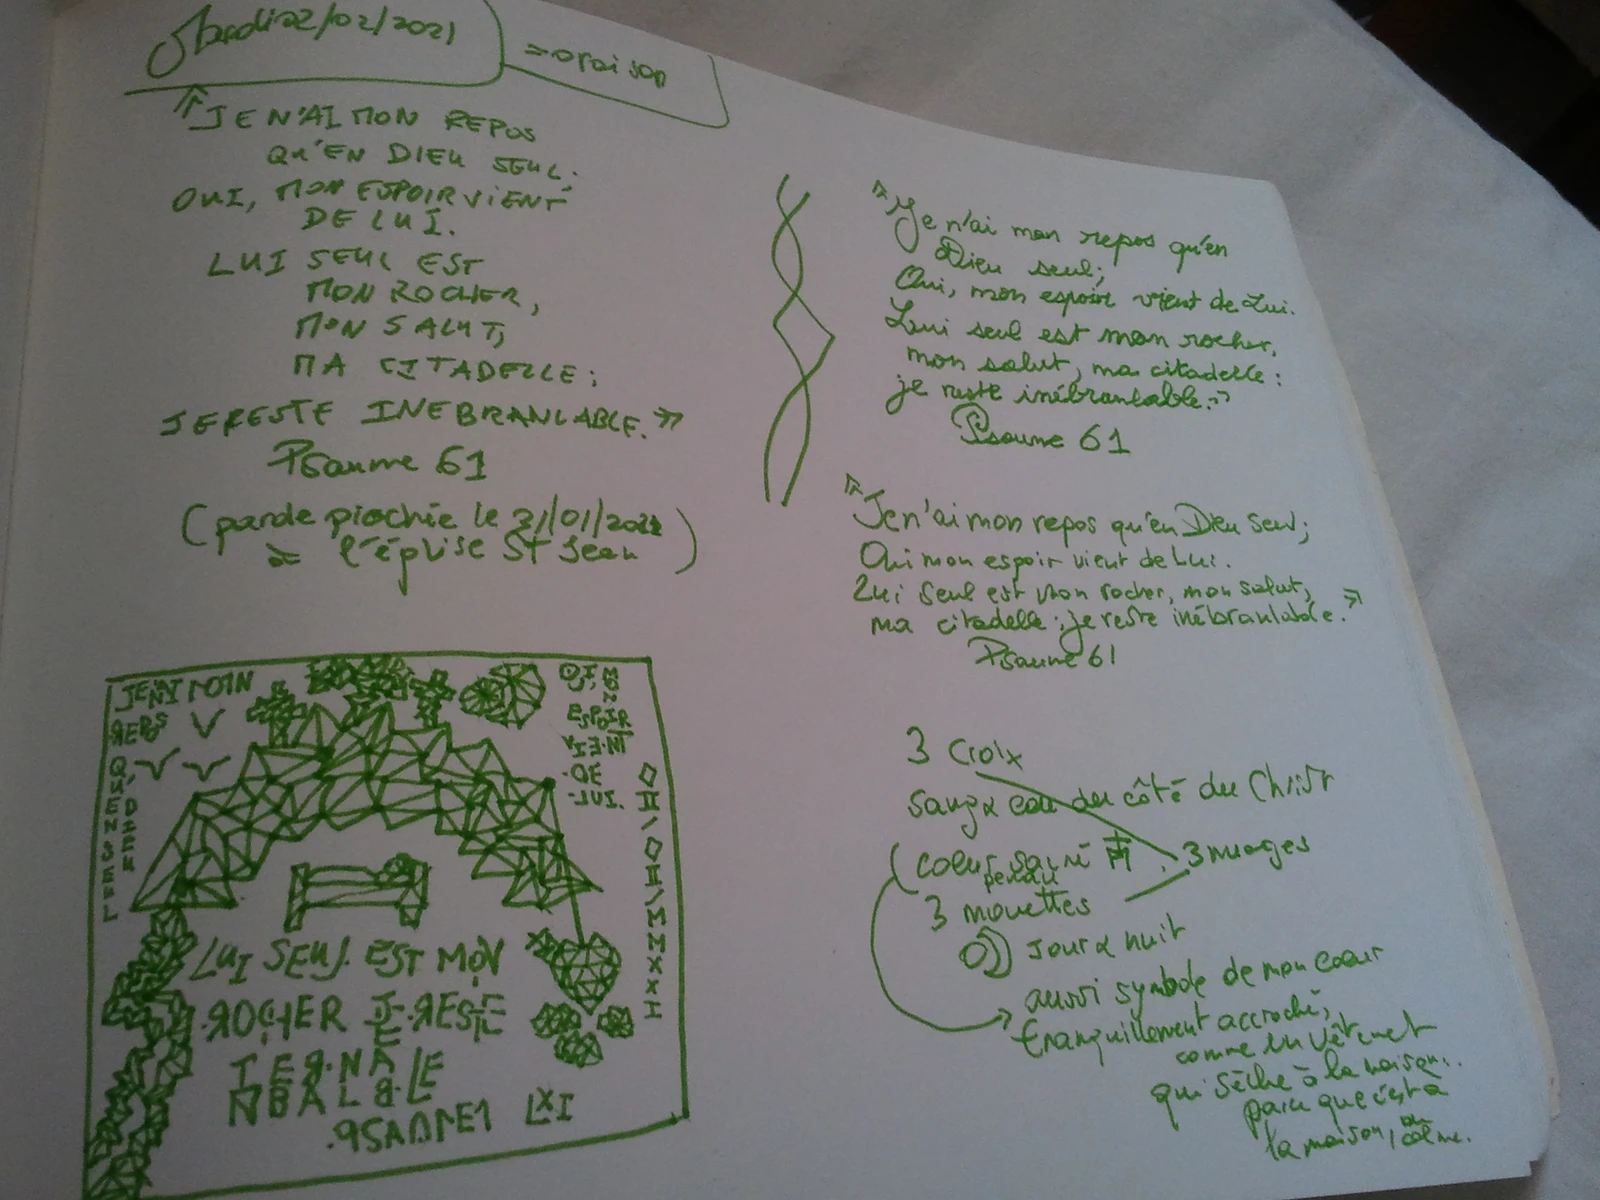 Mardi 02/02/2021
=oraison
"JE N'AI MON REPOS
QU'EN DIEU SEUL;
OUI, MON ESPOIR VIENT
DE LUI.
LUI SEUL EST
MON ROCHER,
MON SALUT,
MA CITADELLE;
JE RESTE INEBRANLABLE."
Psaume 61
(parole piochée le 31/01/2021
à l'église St Jean)
JE N'AI MOIN
REPOS
QU'EN
DIEU
SEUL
OUI, MON
ESPOIR
VIENT
DE
LUI.
LUI SEUL EST MON
ROCHER JE RESTE
PSAUME1 LXI
"Je n'ai mon repos qu'en
Dieu seul;
Oui, mon espoir vient de Lui.
Lui seul est mon rocher,
mon salut, ma citadelle:
je reste inébranlable."
Psaume 61
"Je n'ai mon repos qu'en Dieu seul;
Oui mon espoir vient de Lui.
Lui seul est mon rocher, mon salut,
ma citadelle; je reste inébranlable."
Psaume 61
3 Croix
sang & eau du côté du Christ
coeur sacré
pendu
3 nuages
3 mouettes
jour & nuit
aussi symbole de mon coeur
tranquillement accroché,
comme un vêtement
qui sèche à la maison.
parce que c'est à
la maison, au
calme.